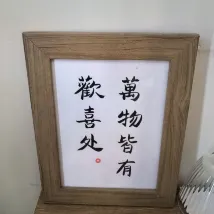 萬物皆有
歡喜处